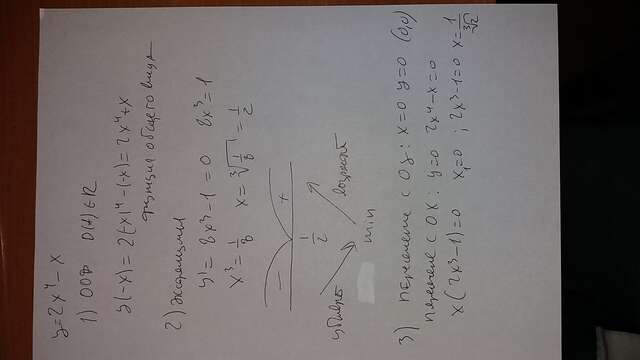 y=2x⁴-x
1) ООФ D(f)∈R
y(-x)=2(-x)⁴-(-x)=2x⁴+x
функция общего вида
2) экстремумы
y'=8x³-1=0 8x³=1
x³=1/8 x=∛1/8=1/2
- +
1/2
убывает возраст
min
3) пересечение с OY: x=0 y=0 (0,0)
пересечение с OX: y=0 2x⁴-x=0
x(2x³-1)=0 x₁=0; 2x³-1=0 x=1/∛2